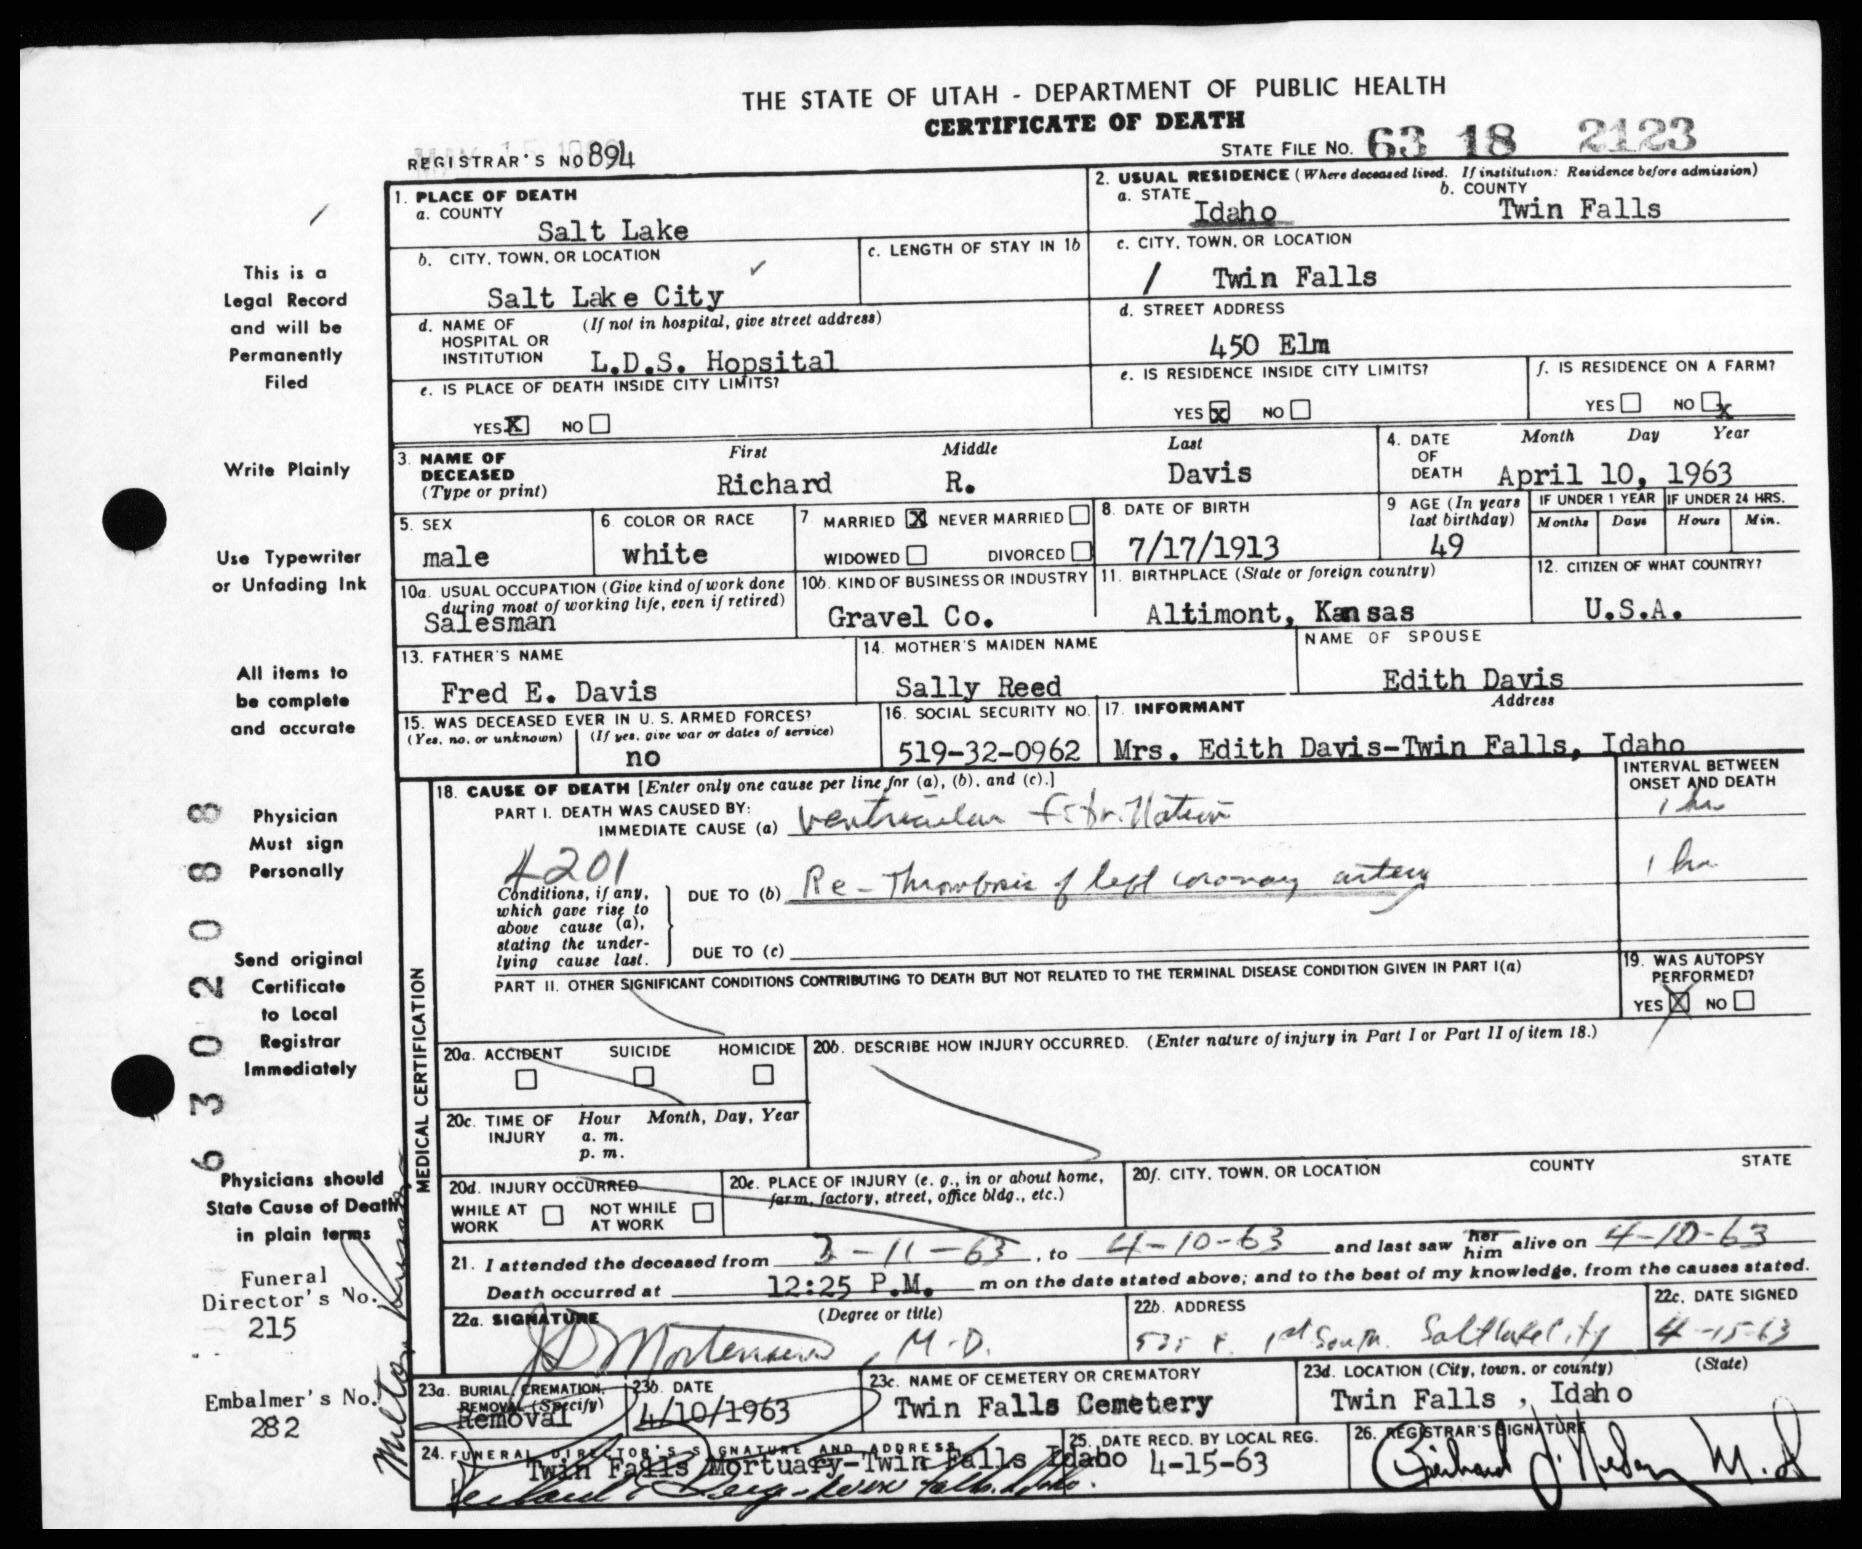 THE STATE OF UTAH - DEPARTMENT OF PUBLIC HEALTH
CERTIFICATE OF DEATH
REGISTRAR'S NO 894
STATE FILE NO. 63 18 2123
1. PLACE OF DEATH
a. COUNTY
Salt Lake
2. USUAL RESIDENCE (Where deceased lived. If institution: Residence before admission)
a. STATE Idaho
b. COUNTY Twin Falls
b. CITY, TOWN, OR LOCATION
Salt Lake City
c. LENGTH OF STAY IN 1b
c. CITY, TOWN, OR LOCATION
Twin Falls
d. NAME OF HOSPITAL OR INSTITUTION (If not in hospital, give street address)
L.D.S. Hopsital
d. STREET ADDRESS
450 Elm
e. IS PLACE OF DEATH INSIDE CITY LIMITS?
YES X NO
e. IS RESIDENCE INSIDE CITY LIMITS?
YES X NO
f. IS RESIDENCE ON A FARM?
YES NO X
3. NAME OF DECEASED (Type or print)
First Middle Last
Richard R. Davis
4. DATE OF DEATH Month Day Year
April 10, 1963
5. SEX
male
6. COLOR OR RACE
white
7. MARRIED X NEVER MARRIED
WIDOWED DIVORCED
8. DATE OF BIRTH
7/17/1913
9 AGE (In years last birthday)
49
IF UNDER 1 YEAR
Months Days
IF UNDER 24 HRS.
Hours Min.
10a. USUAL OCCUPATION (Give kind of work done during most of working life, even if retired)
Salesman
10b. KIND OF BUSINESS OR INDUSTRY
Gravel Co.
11. BIRTHPLACE (State or foreign country)
Altimont, Kansas
12. CITIZEN OF WHAT COUNTRY?
U.S.A.
13. FATHER'S NAME
Fred E. Davis
14. MOTHER'S MAIDEN NAME
Sally Reed
NAME OF SPOUSE
Edith Davis
15. WAS DECEASED EVER IN U.S. ARMED FORCES?
(Yes, no, or unknown) (If yes, give war or dates of service)
no
16. SOCIAL SECURITY NO.
519-32-0962
17. INFORMANT Address
Mrs. Edith Davis-Twin Falls, Idaho
MEDICAL CERTIFICATION
18. CAUSE OF DEATH [Enter only one cause per line for (a), (b), and (c).]
INTERVAL BETWEEN ONSET AND DEATH
PART I. DEATH WAS CAUSED BY:
IMMEDIATE CAUSE (a) Ventricular fibrillation 1 hr
4201
Conditions, if any, which gave rise to above cause (a), stating the underlying cause last.
DUE TO (b) Re-Thrombosis of left coronary artery 1 hr
DUE TO (c)
PART II. OTHER SIGNIFICANT CONDITIONS CONTRIBUTING TO DEATH BUT NOT RELATED TO THE TERMINAL DISEASE CONDITION GIVEN IN PART I(a)
19. WAS AUTOPSY PERFORMED?
YES X NO
20a. ACCIDENT SUICIDE HOMICIDE
20b. DESCRIBE HOW INJURY OCCURRED. (Enter nature of injury in Part I or Part II of item 18.)
20c. TIME OF INJURY Hour Month, Day, Year
a. m.
p. m.
20d. INJURY OCCURRED
WHILE AT WORK NOT WHILE AT WORK
20e. PLACE OF INJURY (e. g., in or about home, farm, factory, street, office bldg., etc.)
20f. CITY, TOWN, OR LOCATION COUNTY STATE
21. I attended the deceased from 3-11-63, to 4-10-63 and last saw her him alive on 4-10-63
Death occurred at 12:25 P.M. m on the date stated above; and to the best of my knowledge, from the causes stated.
22a. SIGNATURE (Degree or title)
JD Mortensen, M.D.
22b. ADDRESS
535 E. 1st South Salt Lake City
22c. DATE SIGNED
4-15-63
23a. BURIAL, CREMATION, REMOVAL (Specify)
Removal
23b. DATE
4/10/1963
23c. NAME OF CEMETERY OR CREMATORY
Twin Falls Cemetery
23d. LOCATION (City, town, or county) (State)
Twin Falls, Idaho
24. FUNERAL DIRECTOR'S SIGNATURE AND ADDRESS
Twin Falls Mortuary-Twin Falls Idaho
25. DATE RECD. BY LOCAL REG.
4-15-63
26. REGISTRAR'S SIGNATURE
M.D
This is a
Legal Record
and will be
Permanently
Filed
Write Plainly
Use Typewriter
or Unfading Ink
All items to
be complete
and accurate
Physician
Must sign
Personally
Send original
Certificate
to Local
Registrar
Immediately
Physicians should
State Cause of Death
in plain terms
Funeral
Director's No.
215
Embalmer's No.
282
63020888